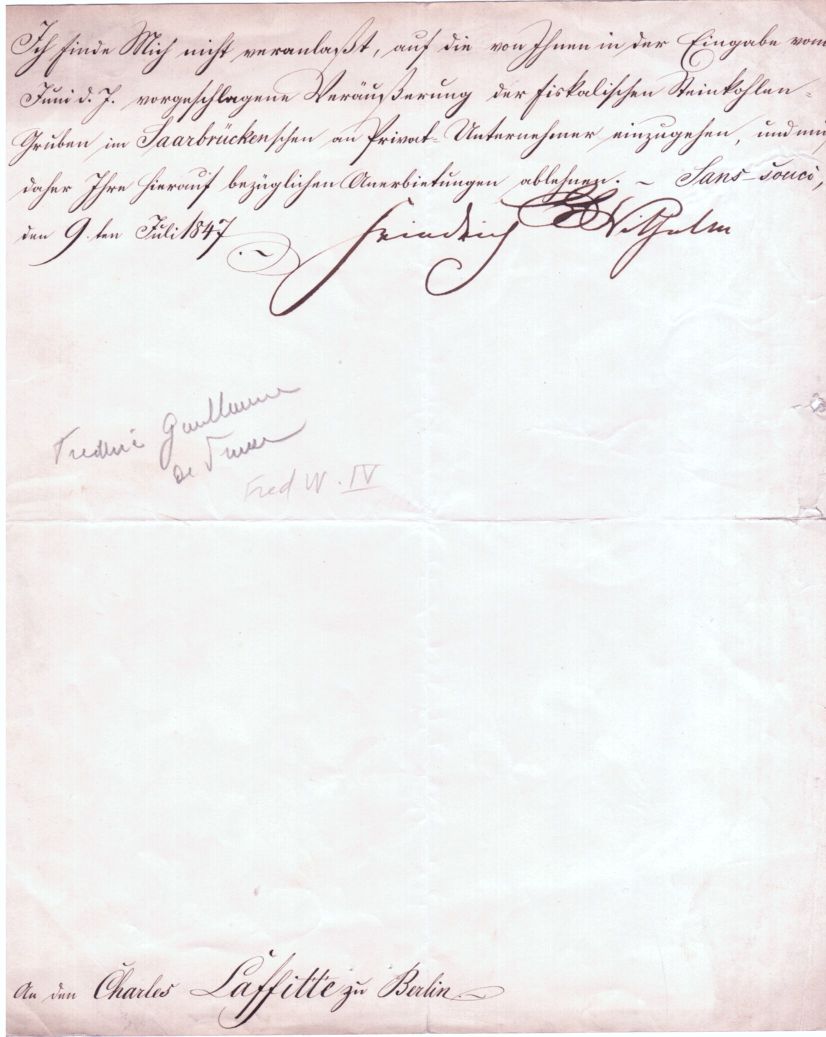 Ich finde Mich nicht veranlaßt, auf die von Ihnen in der Eingabe vom
Juni d. J. vorgeschlagene Veräußerung der fiskalischen Steinkohlen-
Gruben im Saarbrückenschen an Privat-Unternehmer einzugehen, und muß
daher Ihre hierauf bezüglichen Anerbietungen ablehnen. – Sans-souci,
den 9.ten Juli 1847.
Friedrich Wilhelm
Frederic Guillaume
de Prusse
Fred W. IV
An den Charles Laffitte zu Berlin.